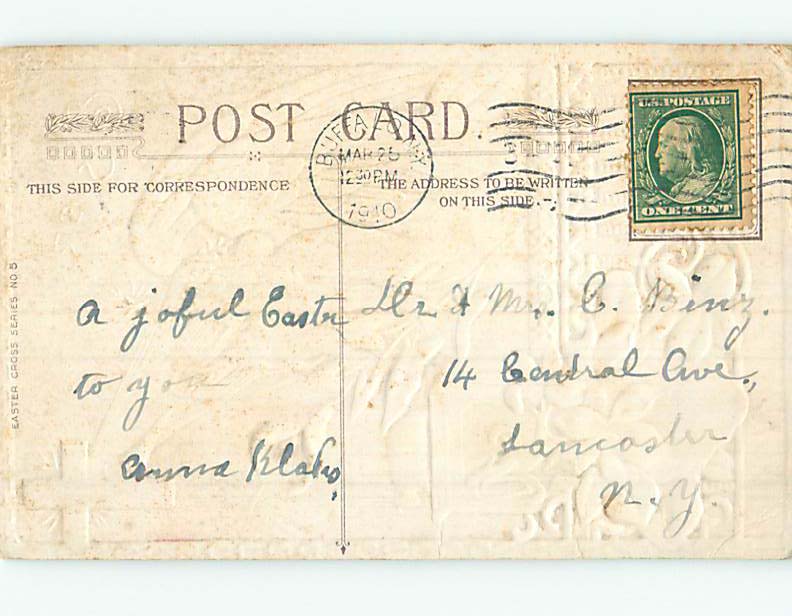 POST CARD.
BUFFALO, N.Y.
MAR 25
12 30 PM
1910
U.S. POSTAGE
ONE CENT
THIS SIDE FOR CORRESPONDENCE
THE ADDRESS TO BE WRITTEN
ON THIS SIDE.
EASTER CROSS SERIES NO. 5
A joful Eastr
to you
Anna
Dr. & Mrs. C. Binz.
14 Central Ave.,
Lancaster
N.Y.